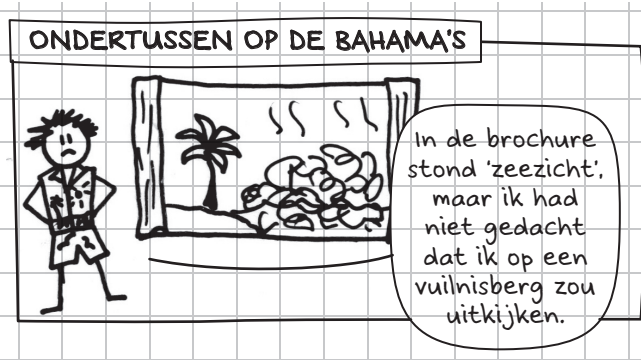 ONDERTUSSEN OP DE BAHAMA'S
In de brochure
stond 'zeezicht',
maar ik had
niet gedacht
dat ik op een
vuilnisberg zou
uitkijken.